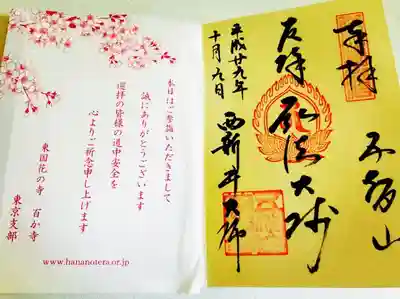 奉拝
五智山
厄除 弘法大師
西新井大師
平成廿九年
十月九日
本日はご参詣いただきまして
誠にありがとうございます
巡拝の皆様の道中安全を
心よりご祈念申し上げます
東国花の寺 百か寺
東京支部
www.hananotera.or.jp